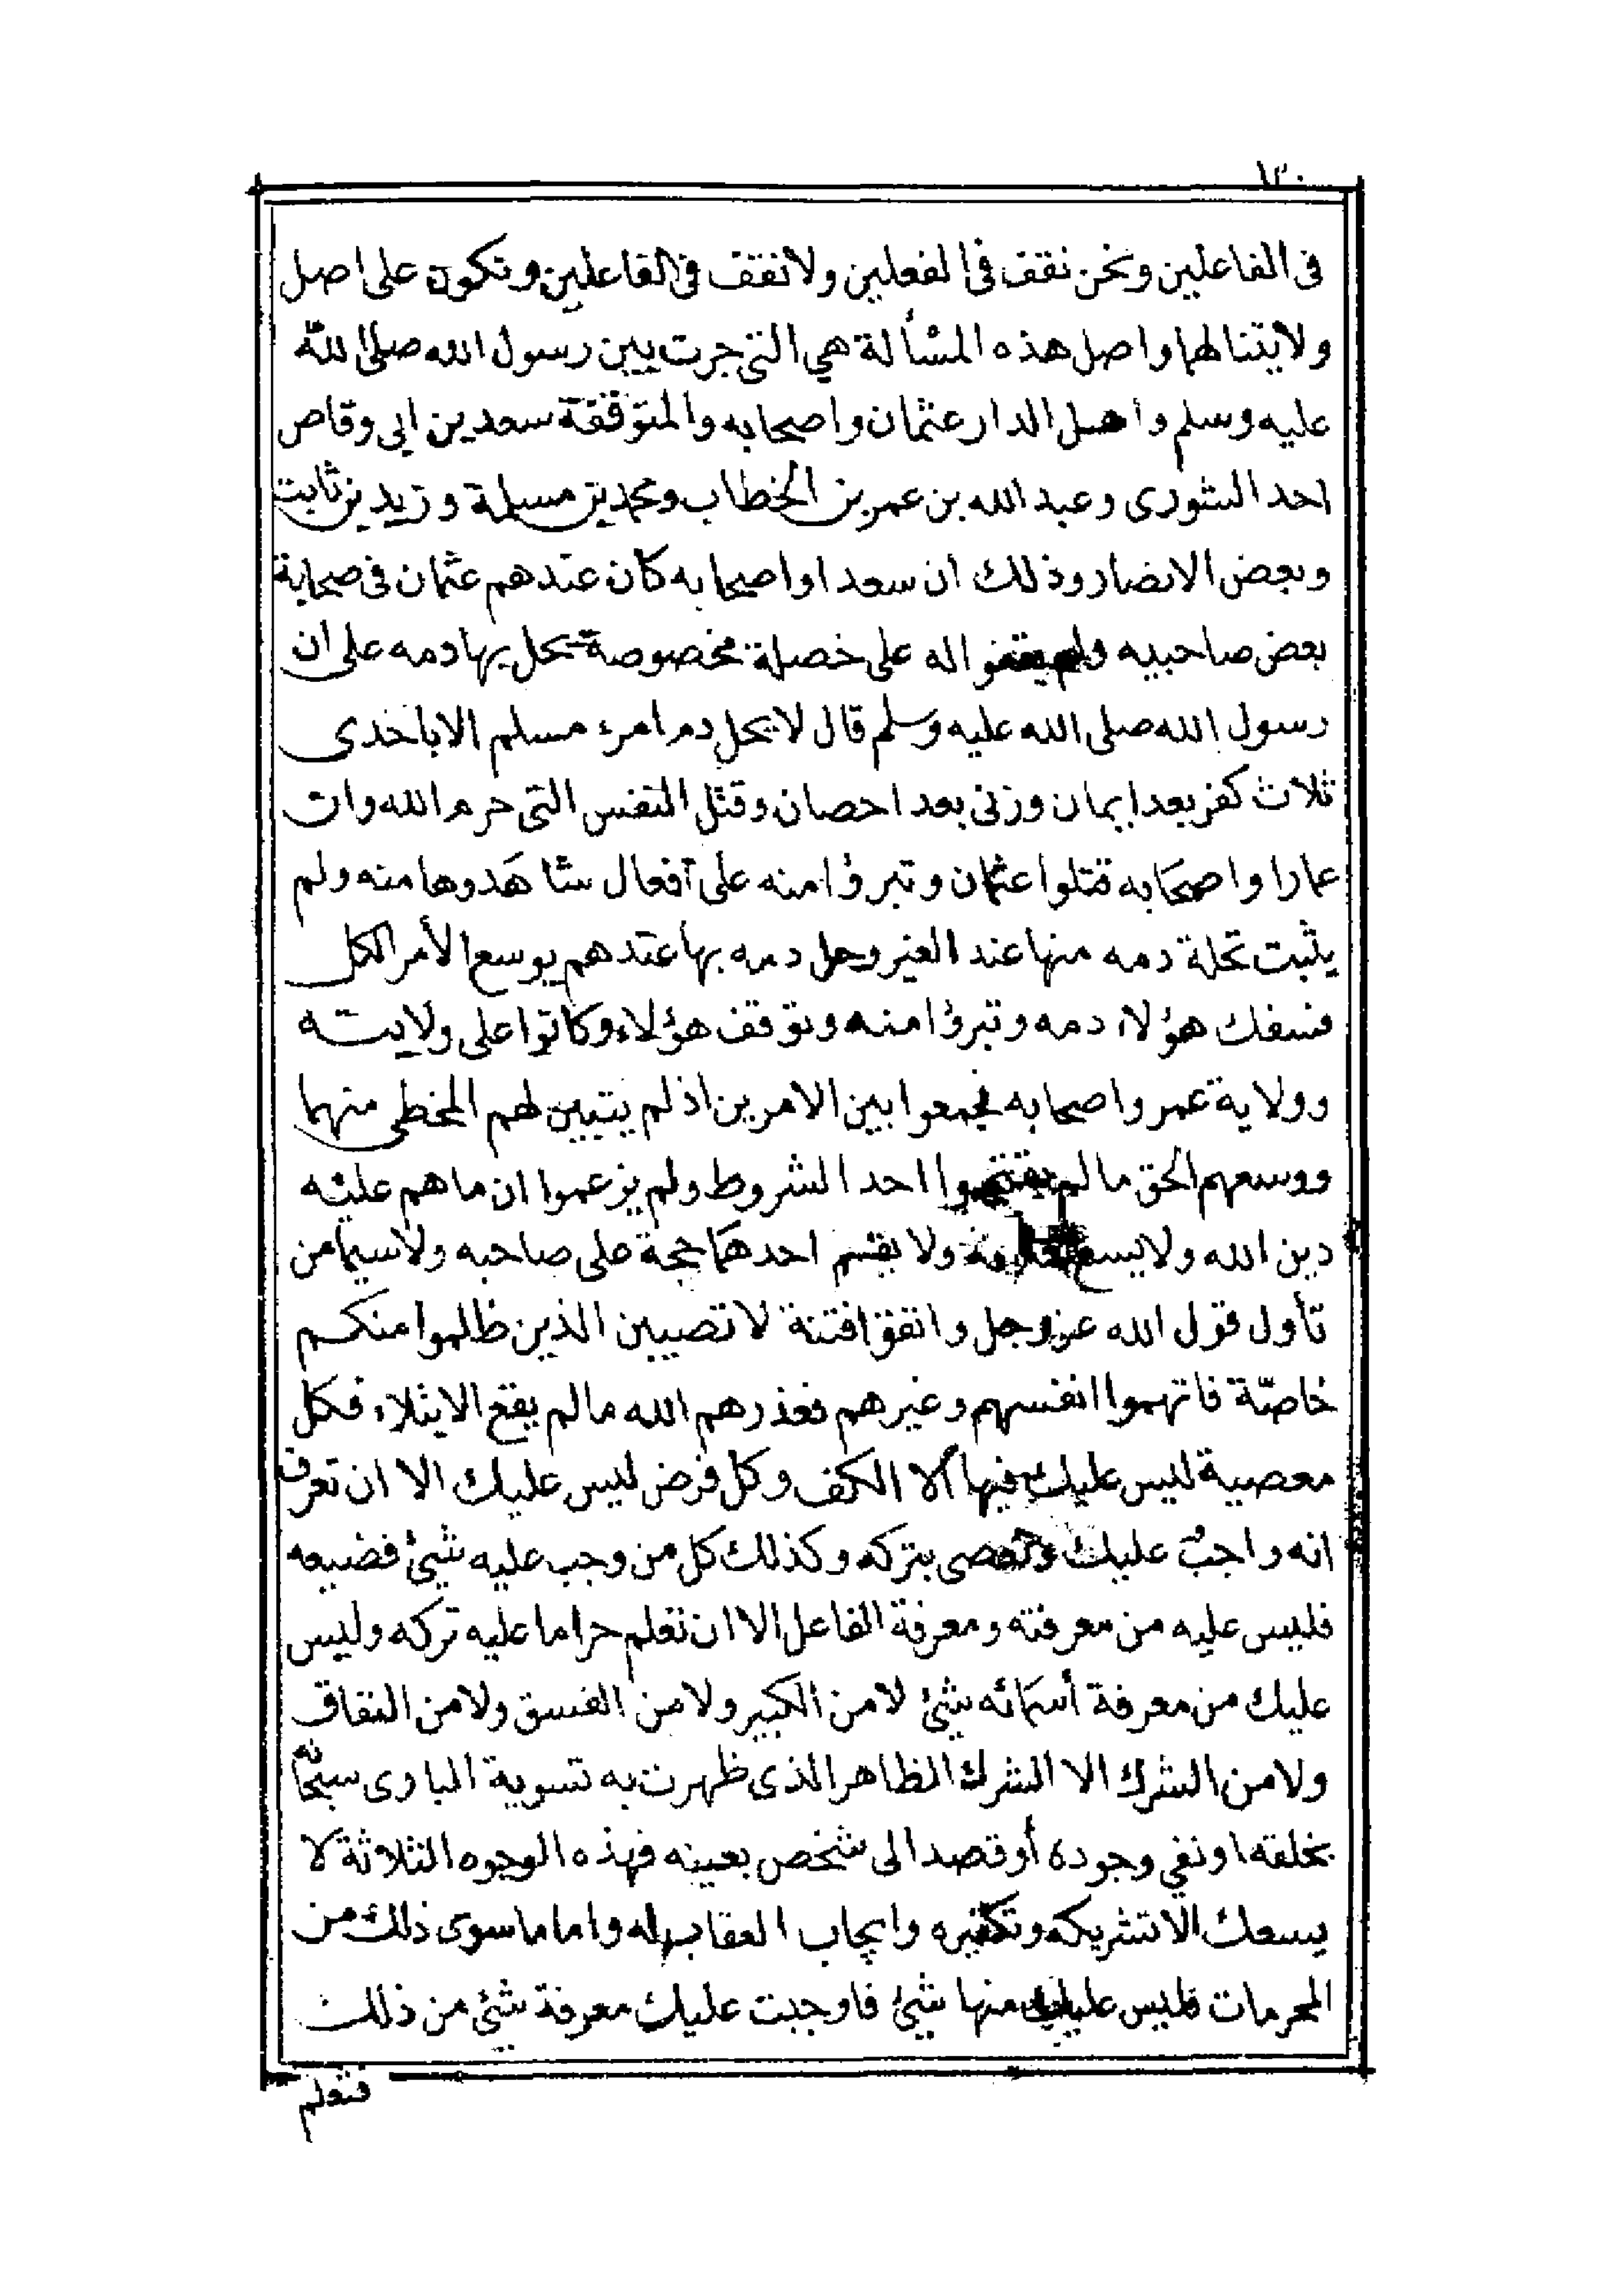 ١٣٠
فى الفاعلين ونحن نقف فى الفعلين ولا نقف فى الفاعلين ونكون على اصل
ولايتنا لهما واصل هذه المسألة هي التى جرت بين رسول الله صلى الله
عليه وسلم واهل الدار عثمان واصحابه والمتوقفة سعد بن ابى وقاص
احد الشورى وعبد الله بن عمر بن الخطاب ومحمد بن مسلمة وزيد بن ثابت
وبعض الانصار وذلك ان سعدا واصحابه كان عندهم عثمان فى صحابة
بعض صاحبيه ولم يقفوا له على خصلة مخصوصة يحل بها دمه على ان
رسول الله صلى الله عليه وسلم قال لا يحل دم امرء مسلم الا باحدى
ثلاث كفر بعد ايمان وزنى بعد احصان وقتل النفس التى حرم الله وان
عمارا واصحابه قتلوا عثمان وتبرؤا منه على أفعال شاهدوها منه ولم
يثبت تحلة دمه منها عند الغير وحل دمه بها عندهم يوسع الأمر الكل
فسفك هؤلاء دمه وتبرؤا منه وتوقف هؤلاء وكانوا على ولايته
وولاية عمر واصحابه فجمعوا بين الامرين اذ لم يتبين لهم المخطى منهما
ووسعهم الحق ما لم احد الشروط ولم يزعموا ان ما هم عليه
دين الله ولا يسع ولا يقسم احدهما حجة على صاحبه ولا سيما من
تأول قول الله عز وجل واتقوا فتنة لا تصيبن الذين ظلموا منكم
خاصّة فاتهموا انفسهم وغيرهم فعذرهم الله ما لم يقع الابتلاء فكل
معصية ليس عليك فيها ألا الكف وكل فرض ليس عليك الا ان تعرف
انه واجب عليك وتعصى بتركه وكذلك كل من وجب عليه شئ فضيعه
فليس عليه من معرفته ومعرفة الفاعل الا ان تعلم حراما عليه تركه وليس
عليك من معرفة أسمائه شئ لا من الكبير ولا من الفسق ولا من النفاق
ولا من الشرك الا الشرك الظاهر الذى ظهرت به تسوية البارى سبحانه
بخلقه او نفي وجوده أو قصد الى شخص بعينه فهذه الوجوه الثلاثة لا
يسعك الا تشريكه وتكفيره وايجاب العقاب له واما ما سوى ذلك من
المحرمات فليس عليك منها شئ فاوجبت عليك معرفة شئ من ذلك
فتعلم